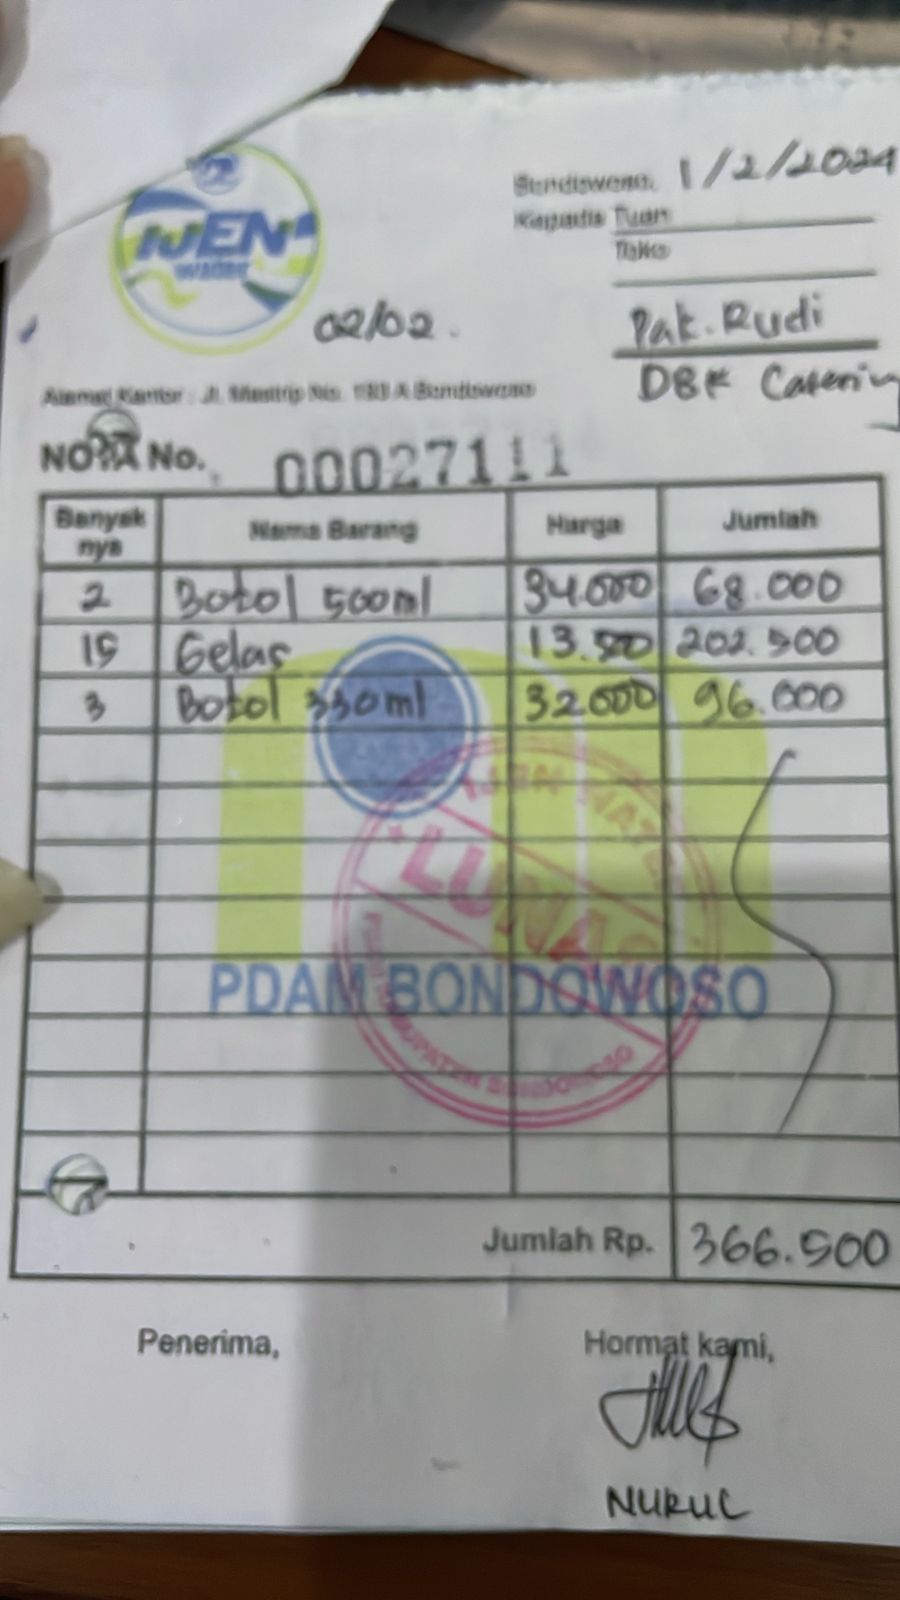 IJEN
water
Bondowoso, 1/2/2024
Kepada Tuan
Toko
02/02.
Pak. Rudi
DBK Catering
Alamat Kantor : Jl. Mastrip No. 193 A Bondowoso
NOTA No. 00027111
Banyak nya Nama Barang Harga Jumlah
2 Botol 500ml 34.000 68.000
15 Gelas 13.500 202.500
3 Botol 330ml 32.000 96.000
IJEN WATER
LUNAS
PDAM BONDOWOSO
KABUPATEN BONDOWOSO
Jumlah Rp. 366.500
Penerima, Hormat kami,
NURUL